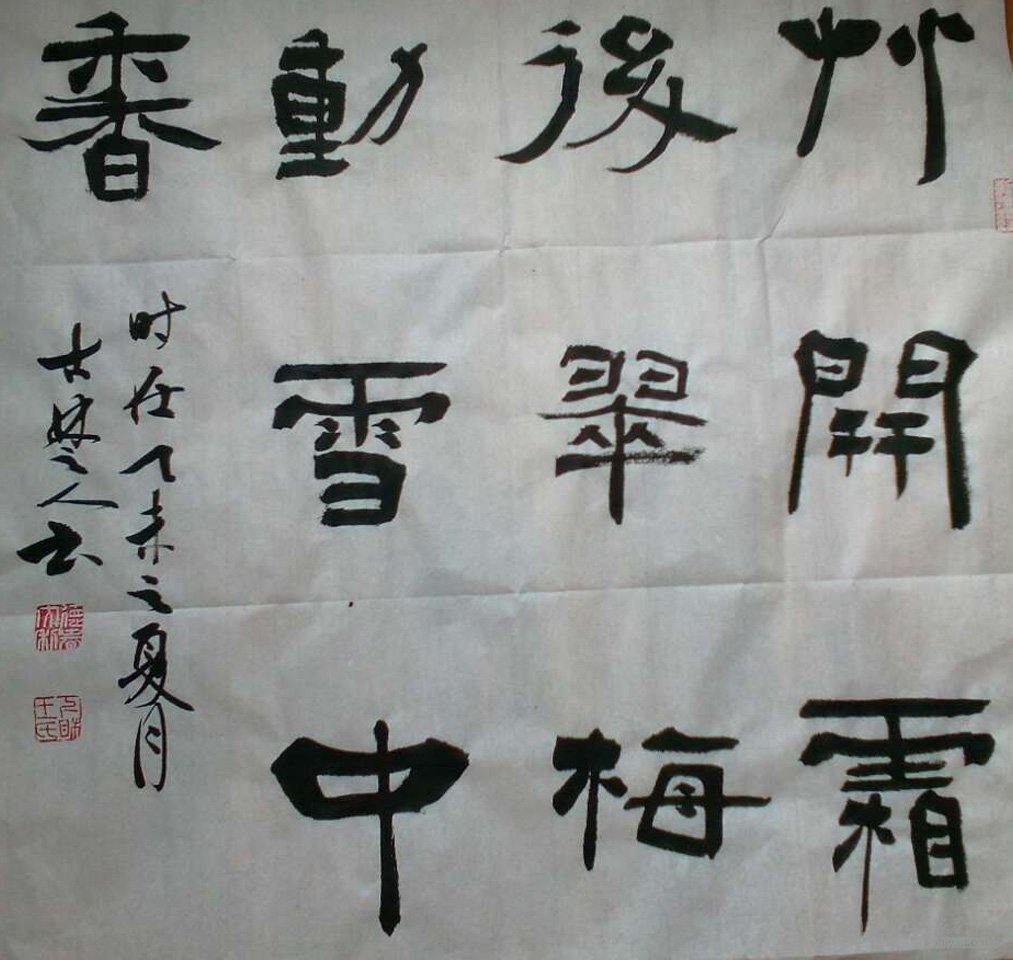 艸開霜
後翠梅
動雪中
香
时在乙未之夏月
古楚之人书